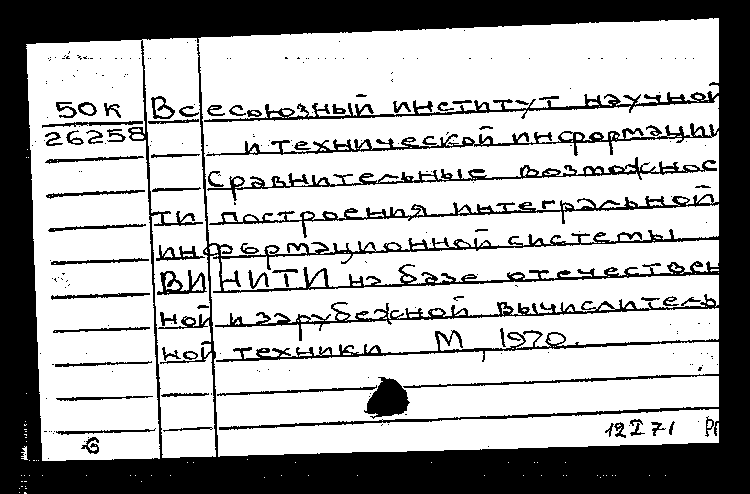 50к Всесоюзный институт научной
26258 и технической информации
Сравнительные возможнос
ти построения интегральной
информационной системы
ВИНИТИ на базе отечествен
ной и зарубежной вычислитель
ной техники М, 1970.
12 I 71